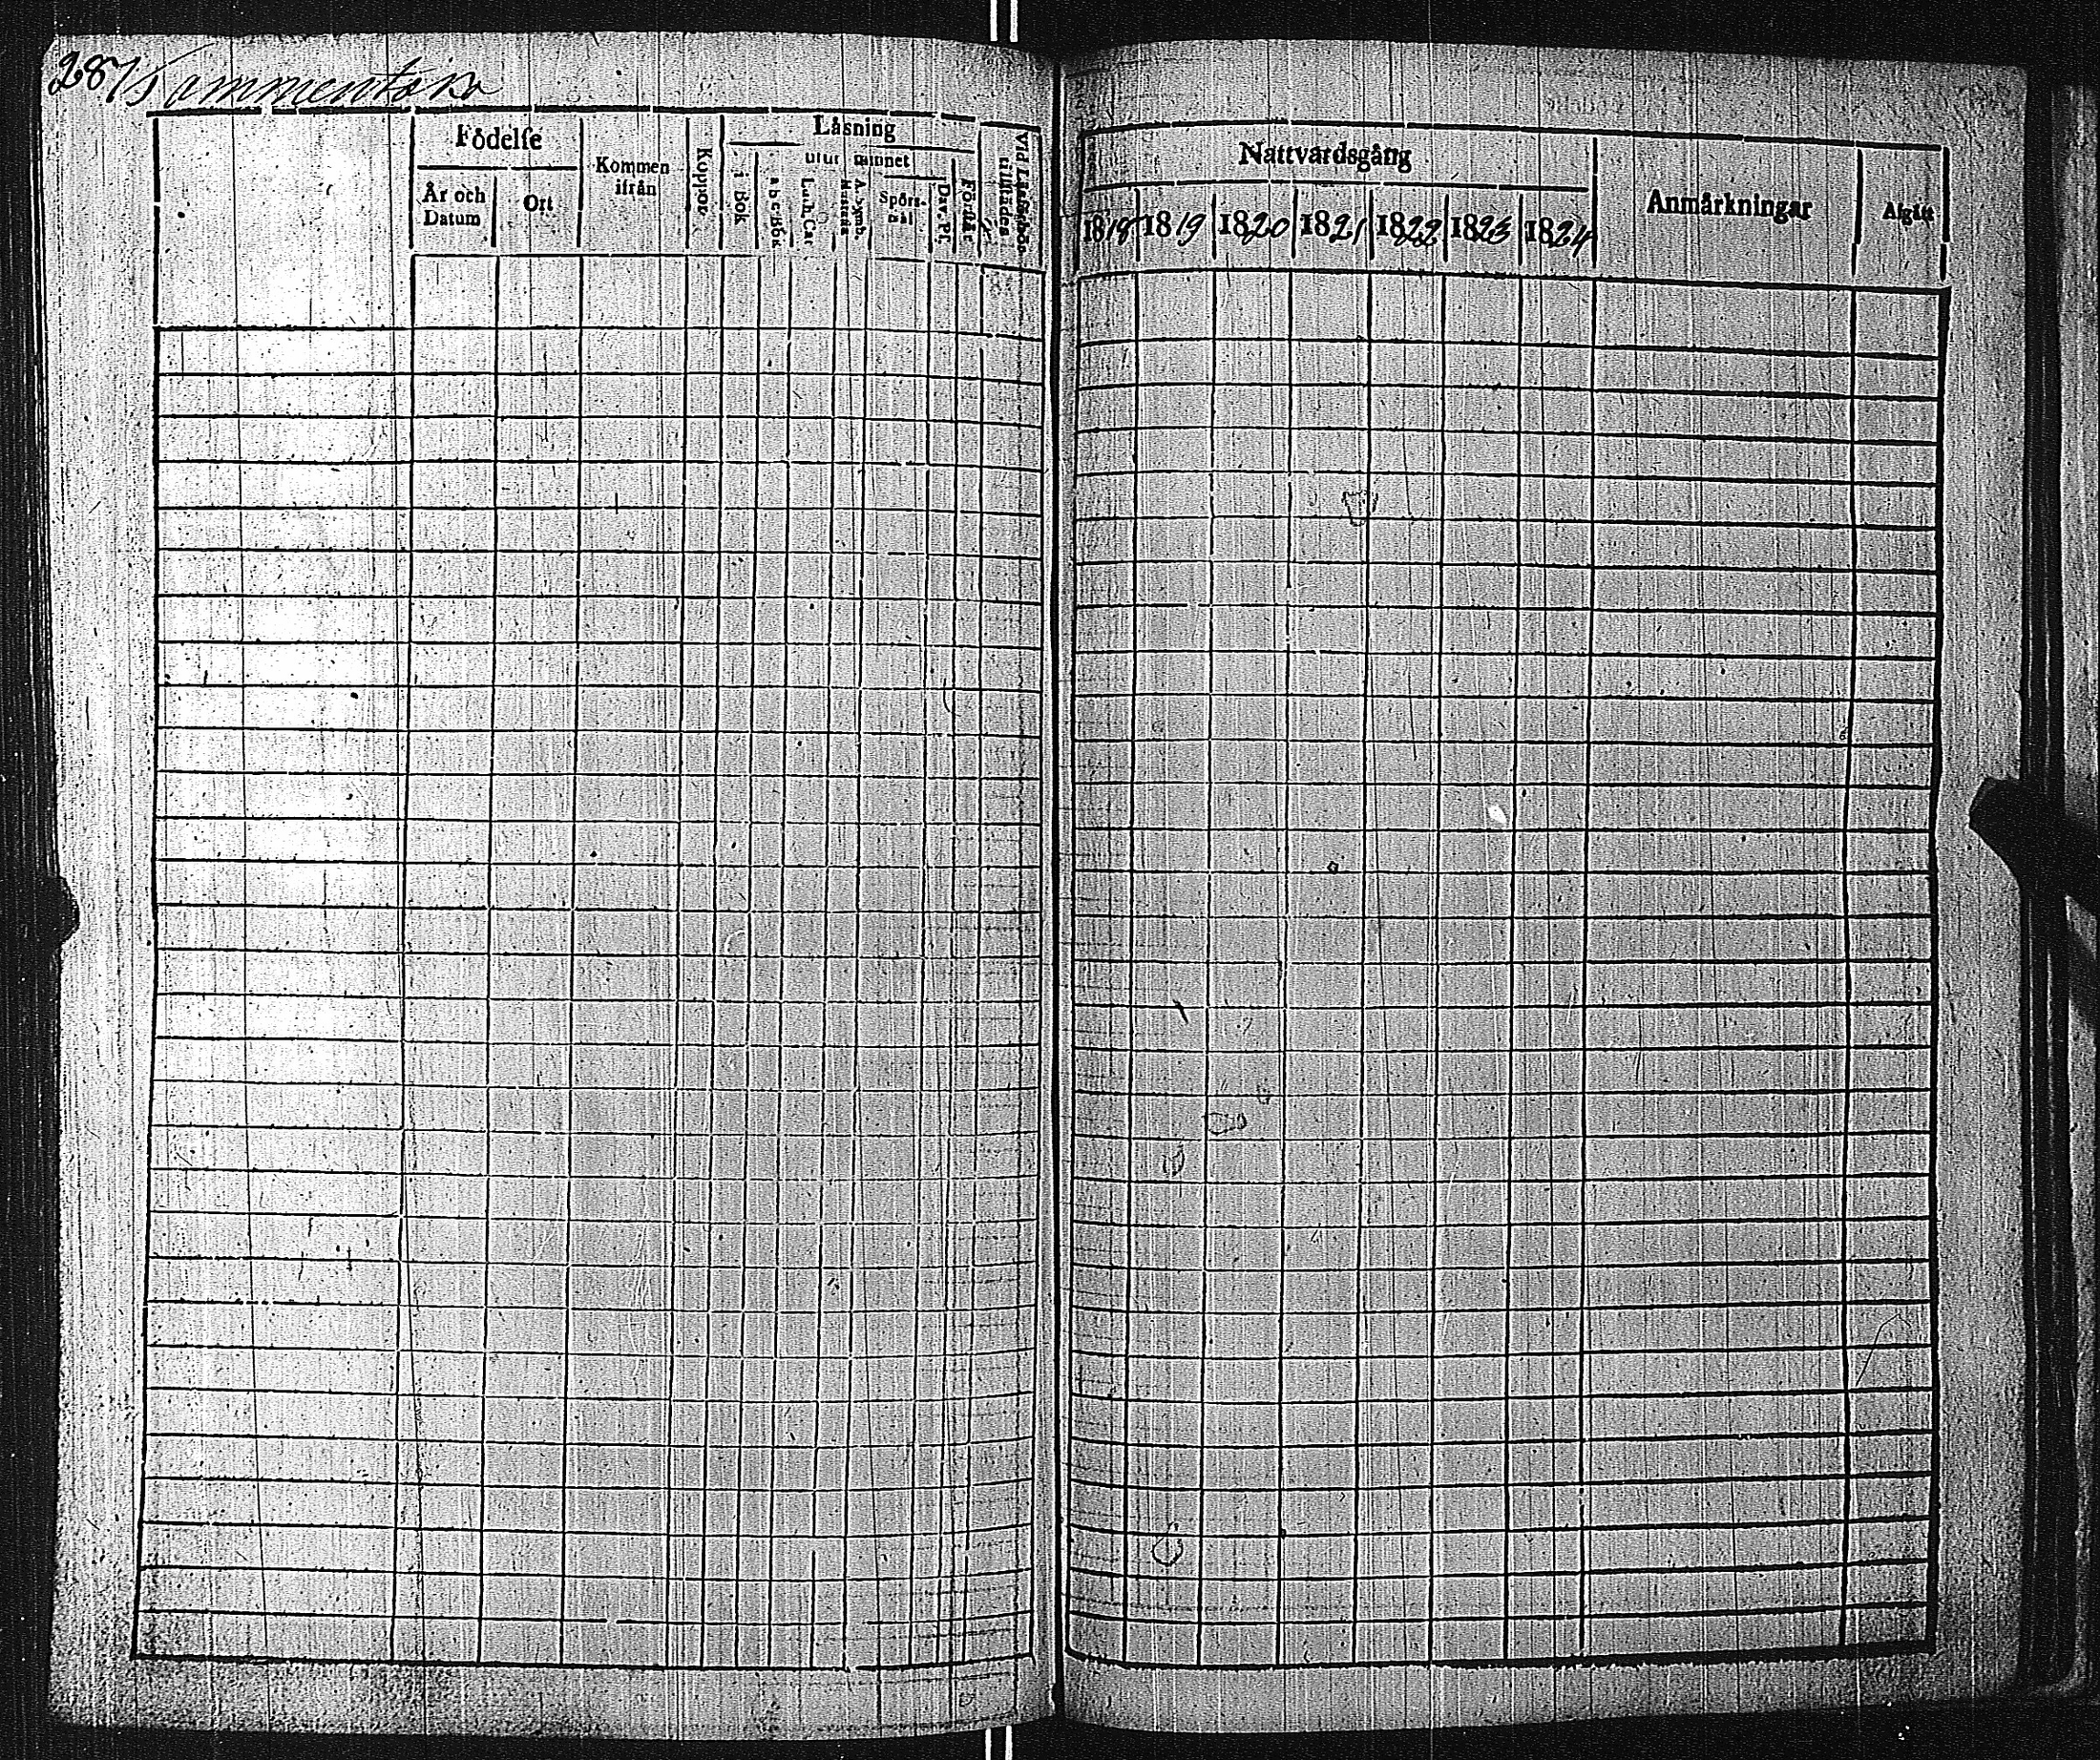 287
Födelse
År och Datum
Ort
Kommen ifrån
Koppor
Läsning
i Bok
utur minnet
a b c Bok
Luth. Cat
Spörsmål
Dav. Ps.
Förstår
Nattvardsgång
1818 1819 1820 1821 1822 1823 1824
Anmärkningar
Afgått